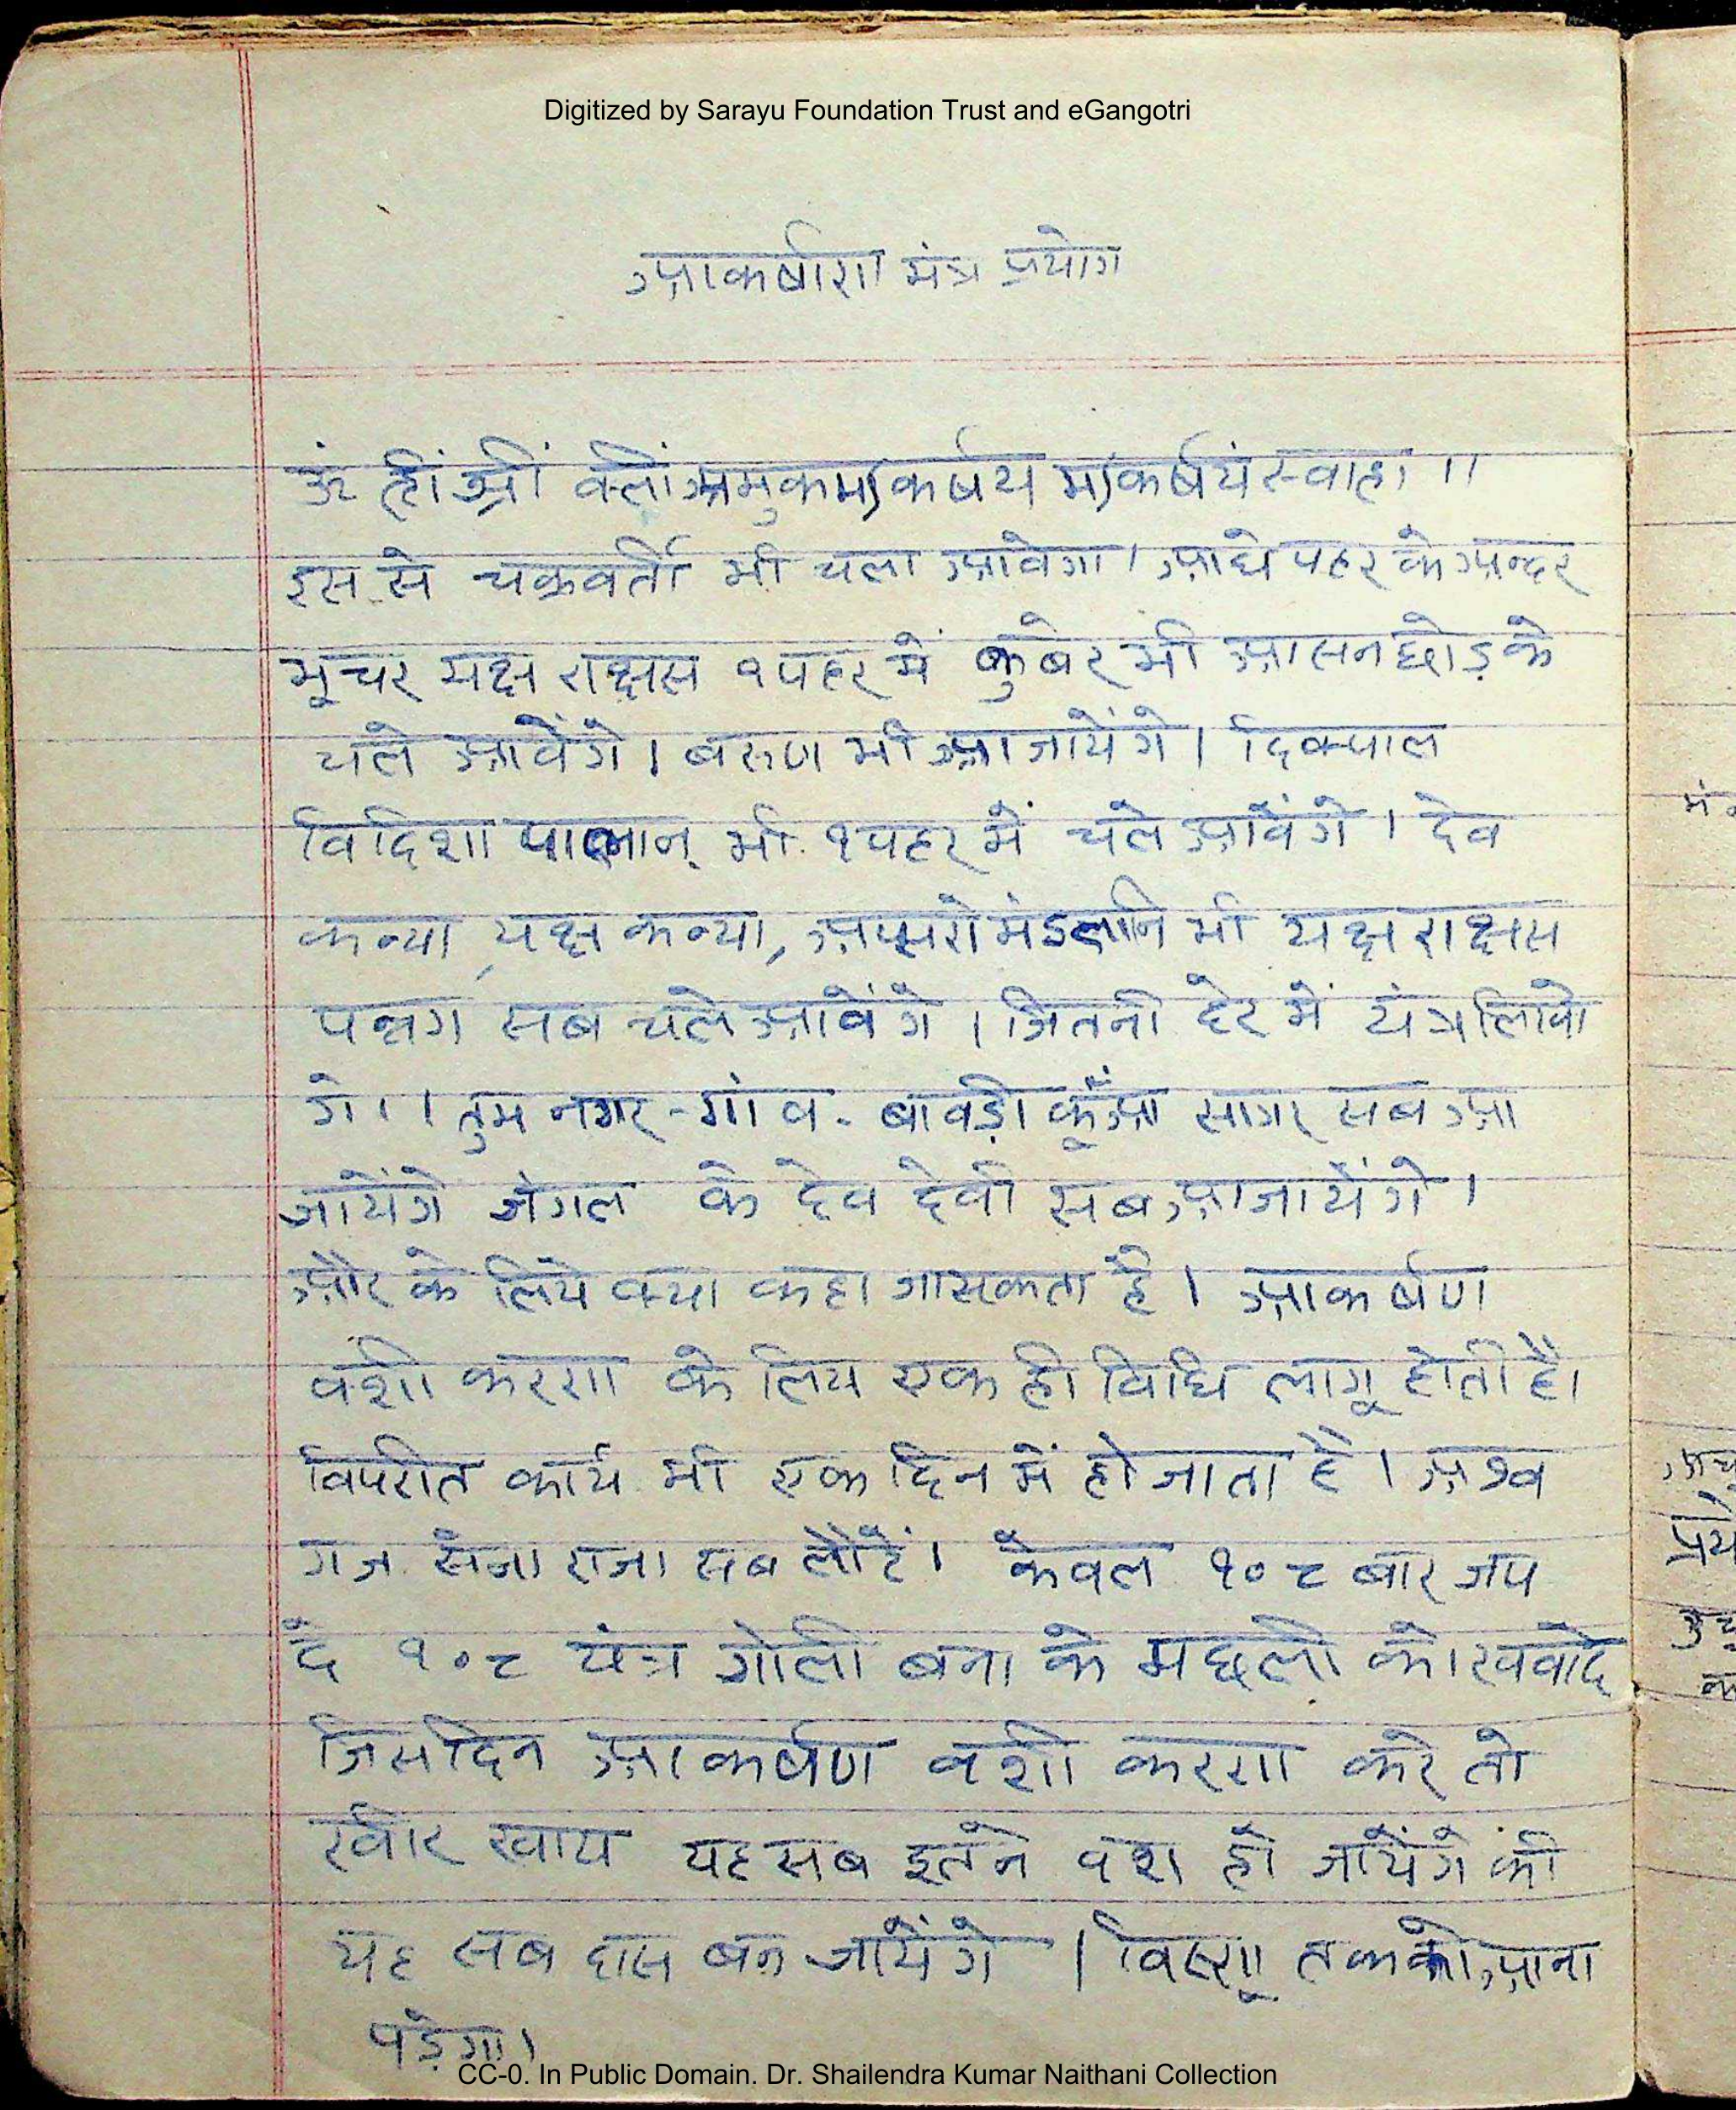 Digitized by Sarayu Foundation Trust and eGangotri
आकर्षण मंत्र प्रयोग
ऊं ह्रीं श्रीं क्लीं अमुकमाकर्षय माकर्षयं स्वाहा ॥
इस से चक्रवर्ती भी चला आवेगा । आधे पहर के अन्दर
भूचर यक्ष राक्षस १ पहर में कुबेर भी आसन छोड़ के
चले आवेंगे । बरुण भी आ जायेंगे । दिक्पाल
विदिशा पालान् भी १ पहर में चले आवेंगे । देव
कन्या, यक्ष कन्या, अप्सरो मंडलानि भी यक्ष राक्षस
पन्नग सब चले आवेंगे । जितनी देर में यंत्र लिखो
गे ।। तुम नगर - गांव - बावड़ी कूँआ सागर सब आ
जायेंगे जंगल के देव देवी सब आ जायेंगे ।
और के लिये क्या कहा जासकता है । आकर्षण
वशी करण के लिय एक ही विधि लागू होती है।
विपरीत कार्य भी एक दिन में हो जाता है । अश्व
गज सैना राजा सब लौटें । केवल १०८ बार जप
दें १०८ यंत्र गोली बना के मछली को खवादे
जिसदिन आकर्षण वशी करण करे तो
खीर खाय यह सब इतने वश हो जायेंगे की
यह सब दास बन जायेंगे । विष्णू तक को आना
पड़ेगा ।
CC-0. In Public Domain. Dr. Shailendra Kumar Naithani Collection
मं
प्रये